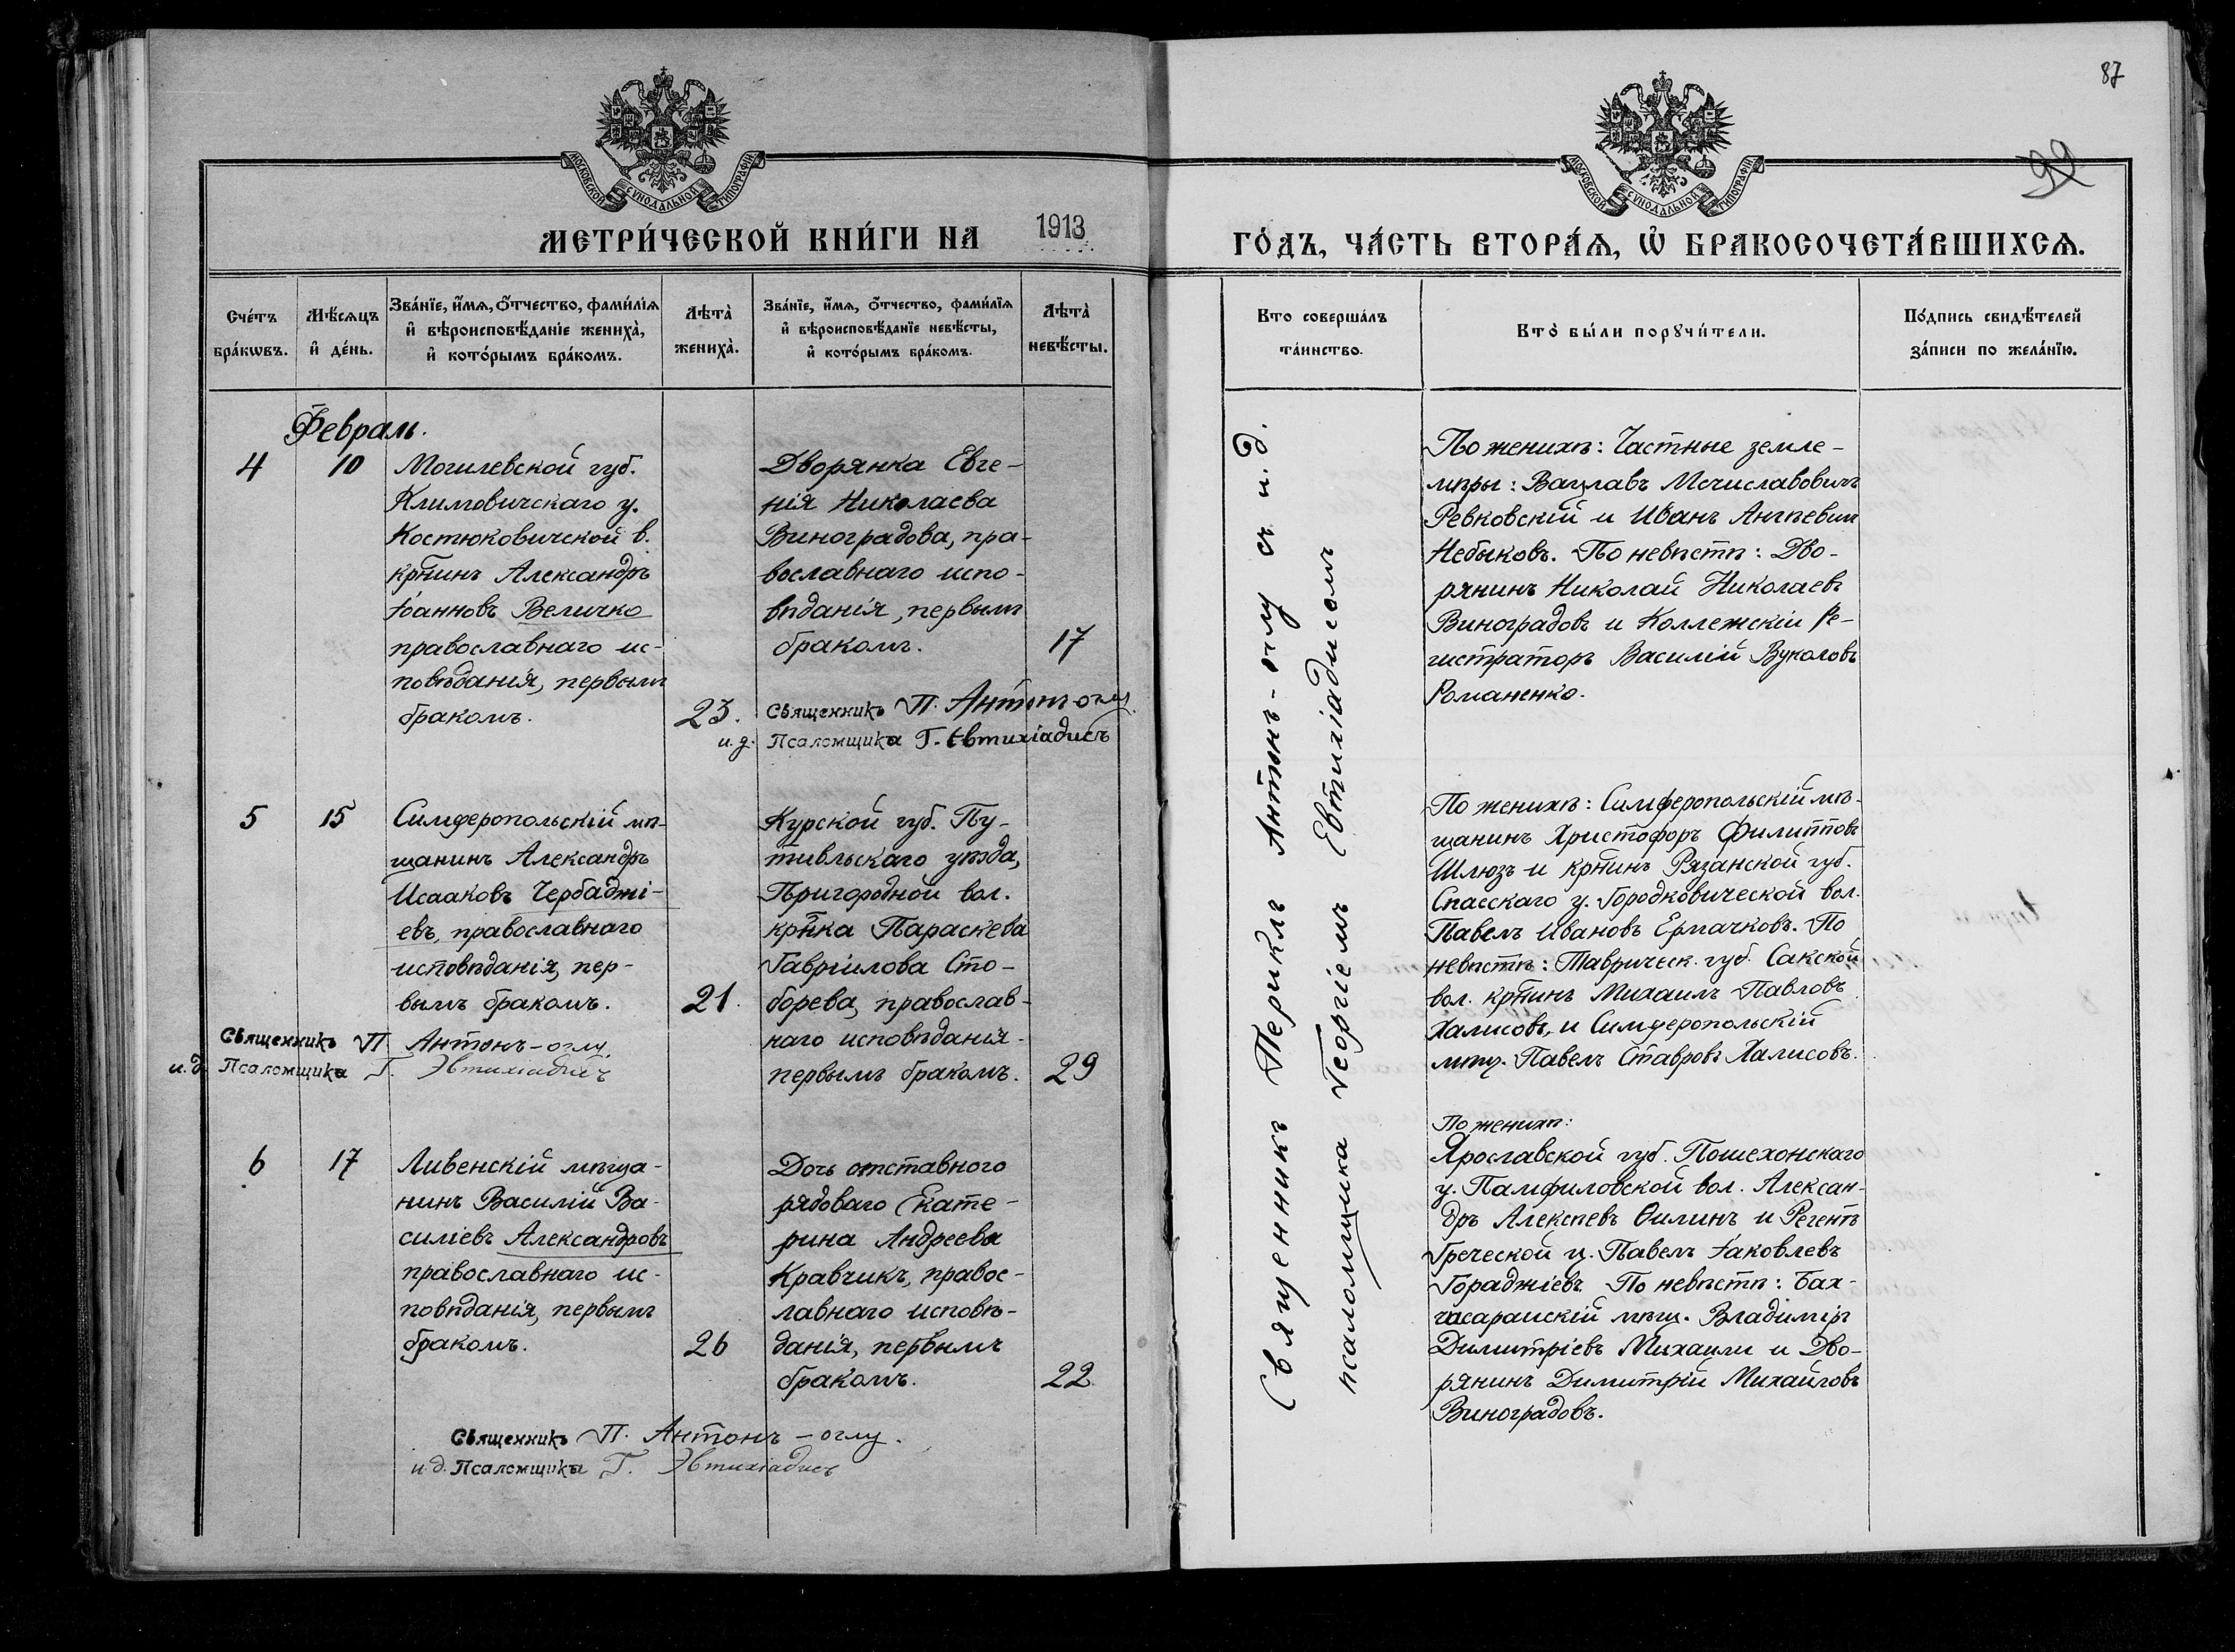 87
99
МОСКОВСКОЙ СѴНОДАЛЬНОЙ ТИПОГРАФІИ
МОСКОВСКОЙ СѴНОДАЛЬНОЙ ТИПОГРАФІИ
МЕТРИ́ЧЕСКОЙ КНИ́ГИ НА 1913
ГО́ДЪ, ЧА́СТЬ ВТОРА́Ѧ, Ѡ҆ БРАКОСОЧЕТА́ВШИХСѦ.
Сче́тъ
бра́кѡвъ.
Мѣ́сѧцъ
и҆ де́нь.
Зва́нїе, и҆́мѧ, ѻ҆́тчество, фами́лїѧ
и҆ вѣроисповѣ́данїе жениха̀,
и҆ кото́рымъ бра́комъ.
Лѣта̀
жениха̀.
Зва́нїе, и҆́мѧ, ѻ҆́тчество, фами́лїѧ
и҆ вѣроисповѣ́данїе невѣ́сты,
и҆ кото́рымъ бра́комъ.
Лѣта̀
невѣ́сты.
Кто соверша́лъ
та́инство.
Кто̀ бы́ли порꙋчи́тели.
По́дпись свидѣ́телей
за́писи по жела́нїю.
Февраль.
4
10
Могилевской губ.
Климовичскаго у.
Костюковичской в.
кр҃нинъ Александръ
Іоанновъ Величко
православнаго ис-
повѣданія, первымъ
бракомъ.
23.
Дворянка Евге-
нія Николаева
Виноградова, пра-
вославнаго испо-
вѣданія, первымъ
бракомъ.
17
Священникъ П. Антонъ-оглу
и.д. Псаломщика Г. Евтихіадисъ
По женихѣ: Частные земле-
мѣры: Вацлавъ Мечиславовичъ
Ревковскій и Иванъ Ангѣевич
Небыковъ. По невѣстѣ: Дво-
рянинъ Николай Николаевъ
Виноградовъ и Коллежскій Ре-
гистраторъ Василій Вуколовъ
Романенко.
5
15
Симферопольскій мѣ-
щанинъ Александръ
Исааковъ Чербаджі-
евъ, православнаго
исповѣданія, пер-
вымъ бракомъ.
21.
Курской губ. Пу-
тивльскаго уѣзда,
Пригородной вол.
кр҃нка Параскева
Гавріилова Сто-
борева, православ-
наго исповѣданія.
первымъ бракомъ.
29
Священникъ П. Антонъ-оглу.
и.д. Псаломщика Г. Эвтихіадисъ
По женихѣ: Симферопольскій мѣ-
щанинъ Христофоръ Филипповъ
Шлюзъ и кр҃нинъ Рязанской губ.
Спасскаго у. Городковической вол.
Павелъ Ивановъ Ермачковъ. По
невѣстѣ: Таврическ. губ. Сакской
вол. кр҃нинъ Михаилъ Павловъ
Халисовъ, и Симферопольскій
мѣщ. Павелъ Ставровъ Халисовъ.
6
17
Ливенскій мѣща-
нинъ Василій Ва-
силіевъ Александровъ
православнаго ис-
повѣданія, первымъ
бракомъ.
26
Дочь отставного
рядоваго Екате-
рина Андреева
Кравчикъ, правос-
лавнаго исповѣ-
данія, первымъ
бракомъ.
22.
Священникъ П. Антонъ-оглу.
и.д. Псаломщика Г. Эвтихіадисъ
По женихѣ:
Ярославской губ. Пошехонскаго
у. Памфиловской вол. Алексан-
дръ Алексѣевъ Ѳилинъ и Регентъ
Греческой ц. Павелъ Іаковлевъ
Гораджіевъ. По невѣстѣ: Бах-
чисарайскій мѣщ. Владиміръ
Димитріевъ Михаили и Дво-
рянинъ Димитрій Михайловъ
Виноградовъ.
Священникъ Периклъ Антонъ-оглу съ и.д.
псаломщика Георгіемъ Евтихіадисомъ